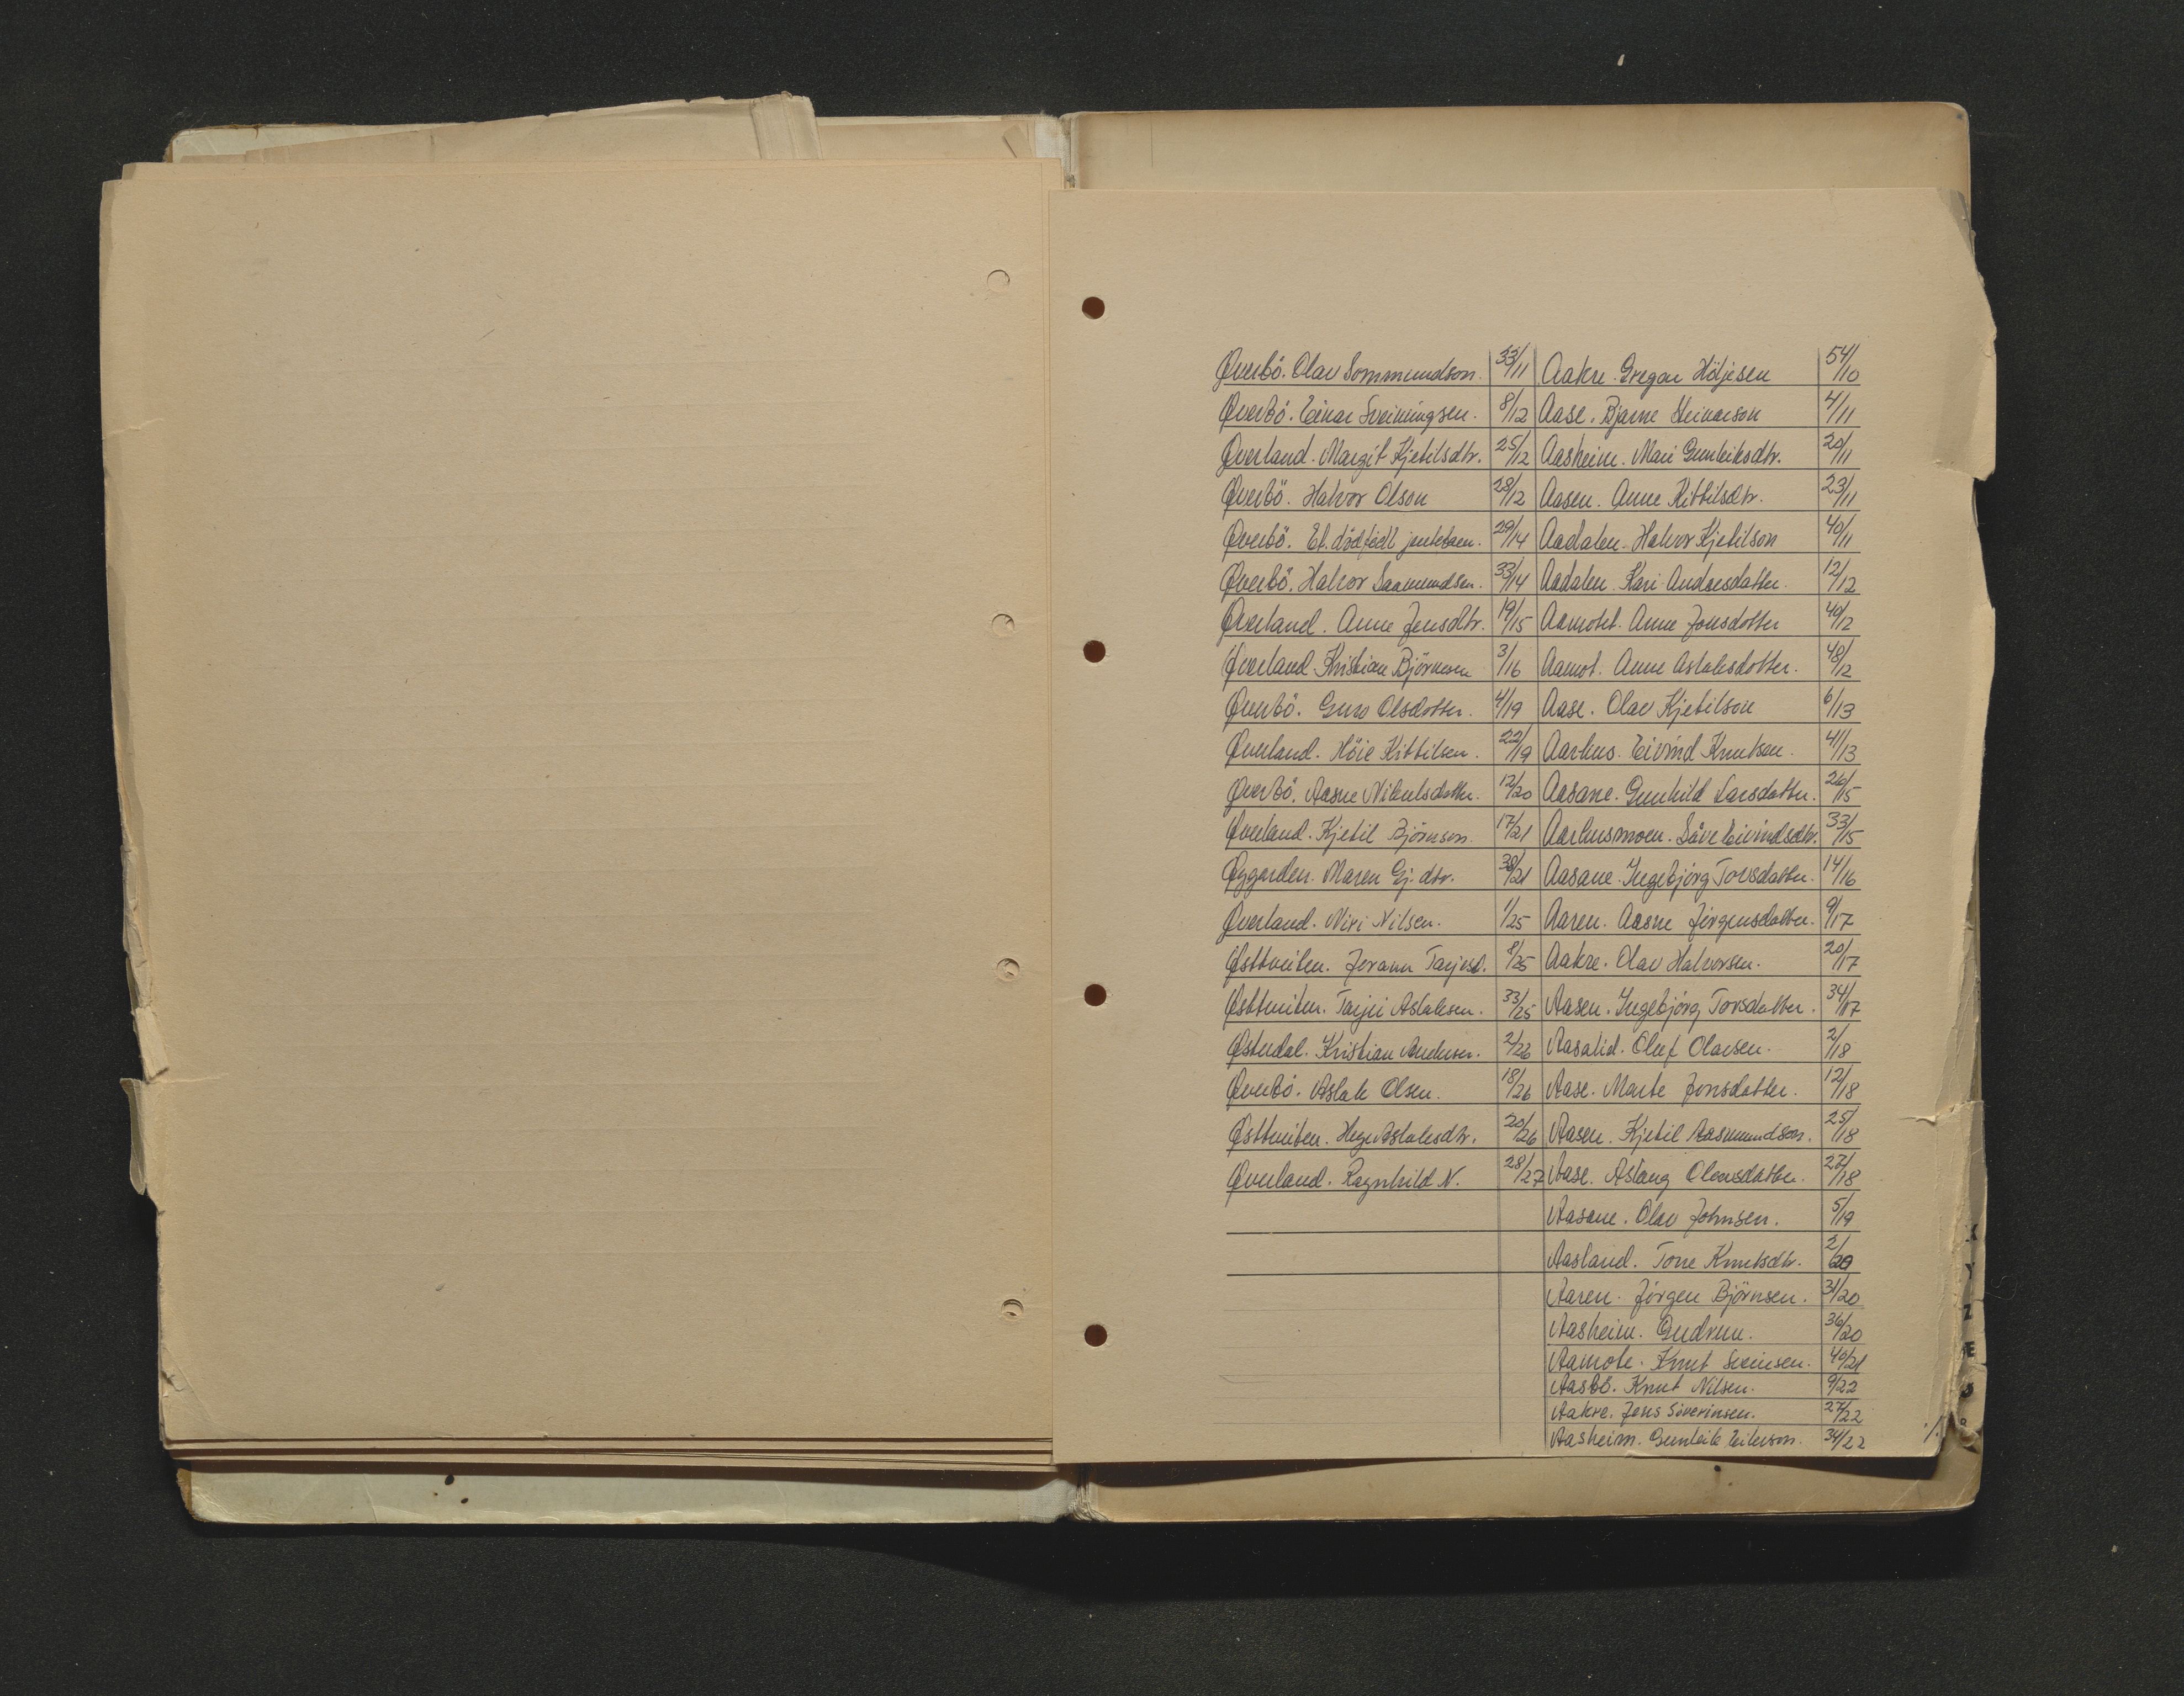 Øverbö. Olav Sommundson. 33/11
Øverbö. Einar Sveinungsen. 8/12
Øverland. Margit Kjetilsdtr. 25/12
Øverbö. Halvor Olson 28/12
Øverbö. Et. dödfödt jentebaen. 29/14
Øverbö. Halvor Saamundsen. 33/14
Øverland. Anne Jensdtr. 19/15
Øverland. Kristian Björnsen 3/16
Øverbö. Guro Olsdotter. 4/19
Øverland. Höie Kittilsen. 22/19
Øverbö. Aasne Nikulsdatter. 12/20
Øverland. Kjetil Björnson. 17/21
Øygarden. Maren Gj. dtr. 38/21
Øverland. Niri Nilsen. 1/25
Østtveiten. Jorann Tarjesd. 8/25
Østtveiten. Tarjei Aslaksen. 33/25
Østerdal. Kristian Andersen. 2/26
Øverbö. Aslak Olsen. 18/26
Østtveiten. Hege Aslaksdtr. 20/26
Øverland. Ragnhild N. 28/27
Aakre. Gregar Höljesen 54/10
Aase. Bjarne Steinarson 4/11
Aasheim. Mari Gunleiksdtr. 20/11
Aasen. Anne Kittilsdtr. 23/11
Aadalen. Halvor Kjetilson 40/11
Aadalen. Kari Andresdatter. 12/12
Aamotet. Anne Jonsdotter 40/12
Aamot. Anne Aslaksdotter. 48/12
Aase. Olav Kjetilson 6/13
Aarhus. Eivind Knutsen. 41/13
Aasane. Gunhild Larsdatter. 26/15
Aarhusmoen. Såve Eivindsdtr. 33/15
Aasane. Ingebjörg Torsdatter. 14/16
Aaren. Aasne Jörgensdatter. 9/17
Aakre. Olav Halvorsen. 20/17
Aasen. Ingebjörg Torsdatter. 34/17
Aasalid. Oluf Olavsen. 2/18
Aase. Marte Jonsdatter. 12/18
Aasen. Kjetil Aasmundson. 25/18
Aase. Aslaug Olavsdatter. 27/18
Aasane. Olav Johnsen. 5/19
Aasland. Tone Knutsdtr. 2/20
Aaren. Jörgen Björnsen. 31/20
Aasheim. Gudrun. 36/20
Aamote. Knut Sveinsen. 40/21
Aasbö. Knut Nilsen. 9/22
Aakre. Jens Söverinsen. 27/22
Aasheim. Gunleik Eilevson. 34/22
./.
X
Y
Z
Æ
Ø